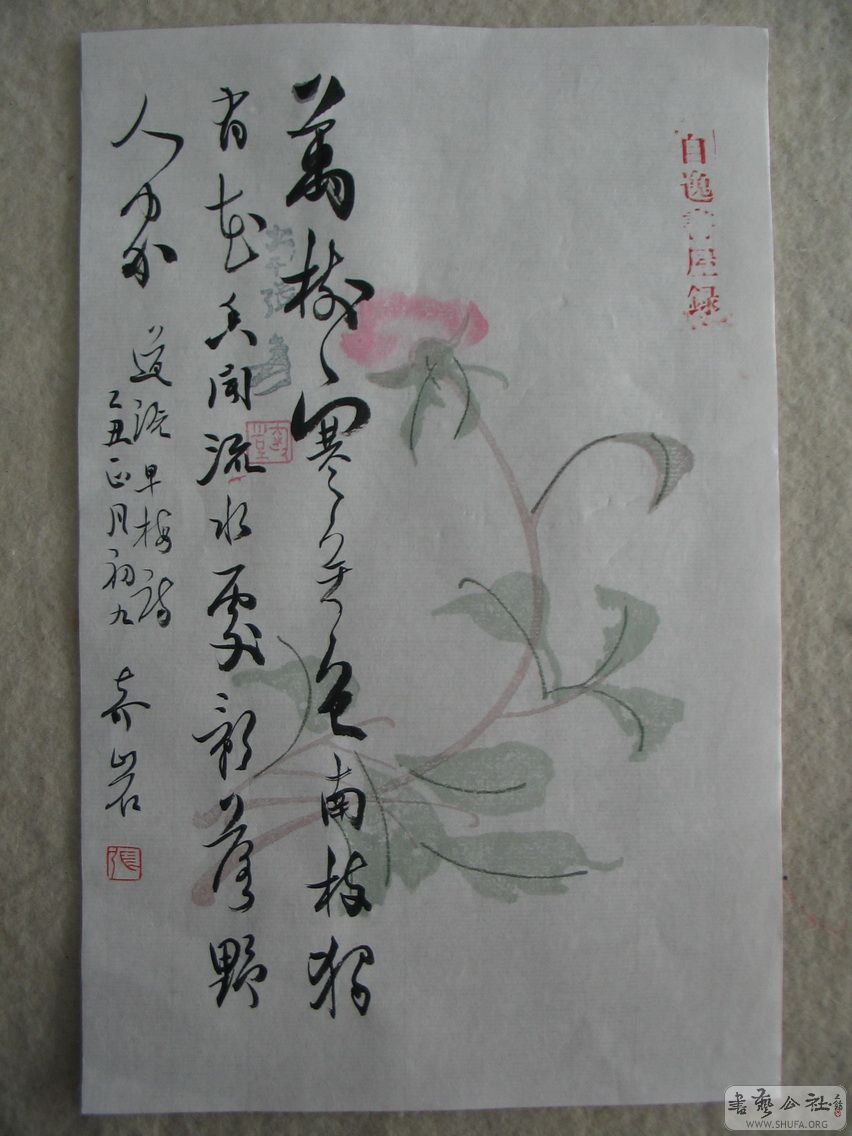 自逸書屋録
萬樹寒無色南枝獨
有花香聞流水處影落野
人家
道源早梅詩
己丑正月初九
奇岩
張
書藝公社
WWW.SHUFA.ORG